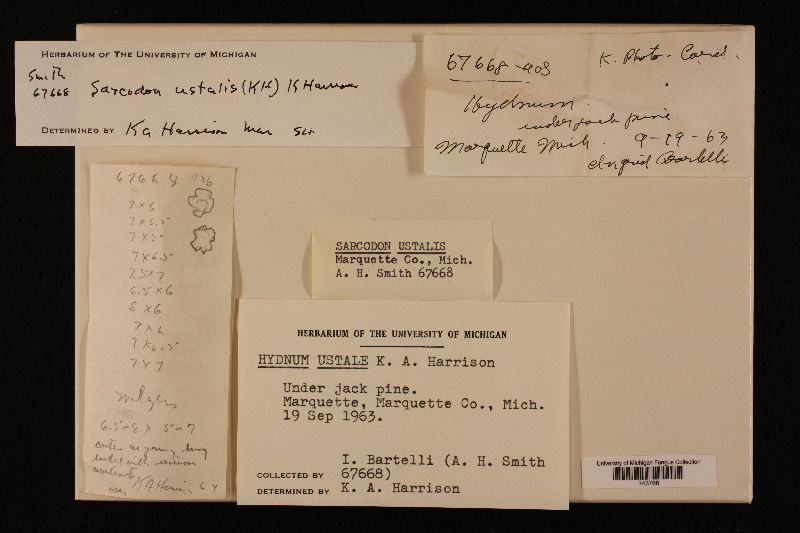 HERBARIUM OF THE UNIVERSITY OF MICHIGAN
Smith
67668 Sarcodon ustalis (KH) K Harrison
DETERMINED BY KA Harrison
67668-AHS K. Photo - Card.
Hydnum.
under jack pine.
Marquette Mich. 9-19-63
Ingrid Bartelli
67668 7x6
7x6
7x5.5
7x5
7x6.5
7.5x7
6.5x6
8x6
7x6
7x6.5
7x7
6.5-8 x 5-7
KA Harrison 64
SARCODON USTALIS
Marquette Co., Mich.
A. H. Smith 67668
HERBARIUM OF THE UNIVERSITY OF MICHIGAN
HYDNUM USTALE K. A. Harrison
Under jack pine.
Marquette, Marquette Co., Mich.
19 Sep 1963.
I. Bartelli (A. H. Smith
COLLECTED BY 67668)
DETERMINED BY K. A. Harrison
University of Michigan Fungus Collection
143788